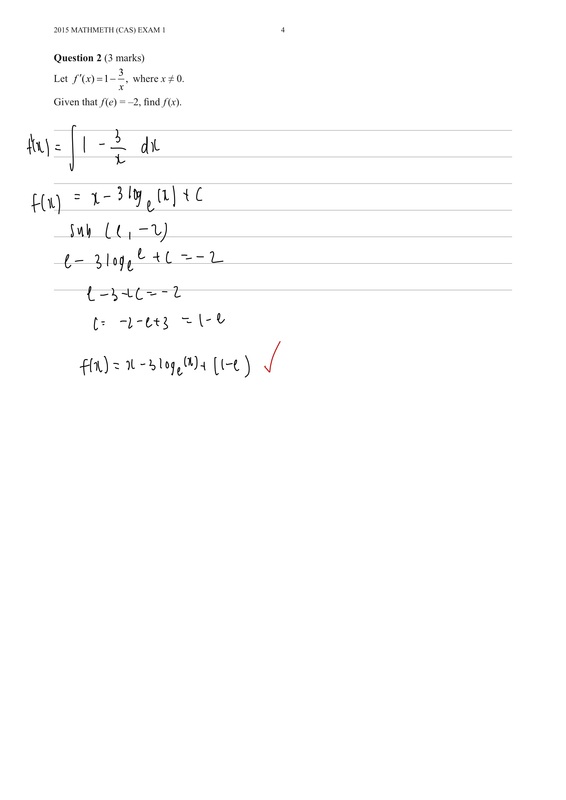 2015 MATHMETH (CAS) EXAM 1 4
Question 2 (3 marks)
Let f′(x) = 1 − 3/x, where x ≠ 0.
Given that f(e) = –2, find f(x).
f'(x) = ∫ 1 - 3/x dx
f(x) = x - 3 log_e (x) + c
sub (e, -2)
e - 3 log_e e + c = -2
e - 3 + c = -2
c = -2 - e + 3 = 1 - e
f(x) = x - 3 log_e (x) + (1 - e) ✓